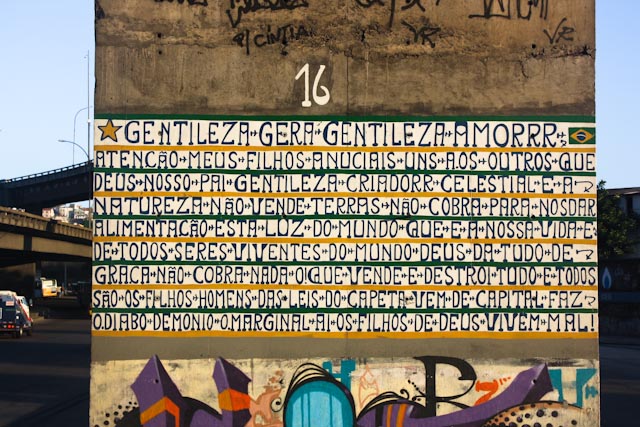 P/ CÍNTIA
VR
VR
16
GENTILEZA GERA GENTILEZA AMORRR
ATENCÃO MEUS FILHOS ANUCIAIS UNS AOS OUTROS QUE
DEUS NOSSO PAI GENTILEZA CRIADORR CELESTIAL E A
NATUREZA NÃO VENDE TERRAS NÃO COBRA PARA NOS DAR
ALIMENTAÇÃO ESTA LUZ DO MUNDO QUE E A NOSSA VIDA E
DE TODOS SERES VIVENTES DO MUNDO DEUS DA TUDO DE
GRACA NÃO COBRA NADA O! QUE VENDE E DESTROI TUDO E TODOS
SÃO OS FILHOS HOMENS DAS LEIS DO CAPETA VEM DE CAPITAL FAZ
O.DIABO DEMONIO O.MARGINAL AI OS FILHOS DE DEUS VIVEM MAL!